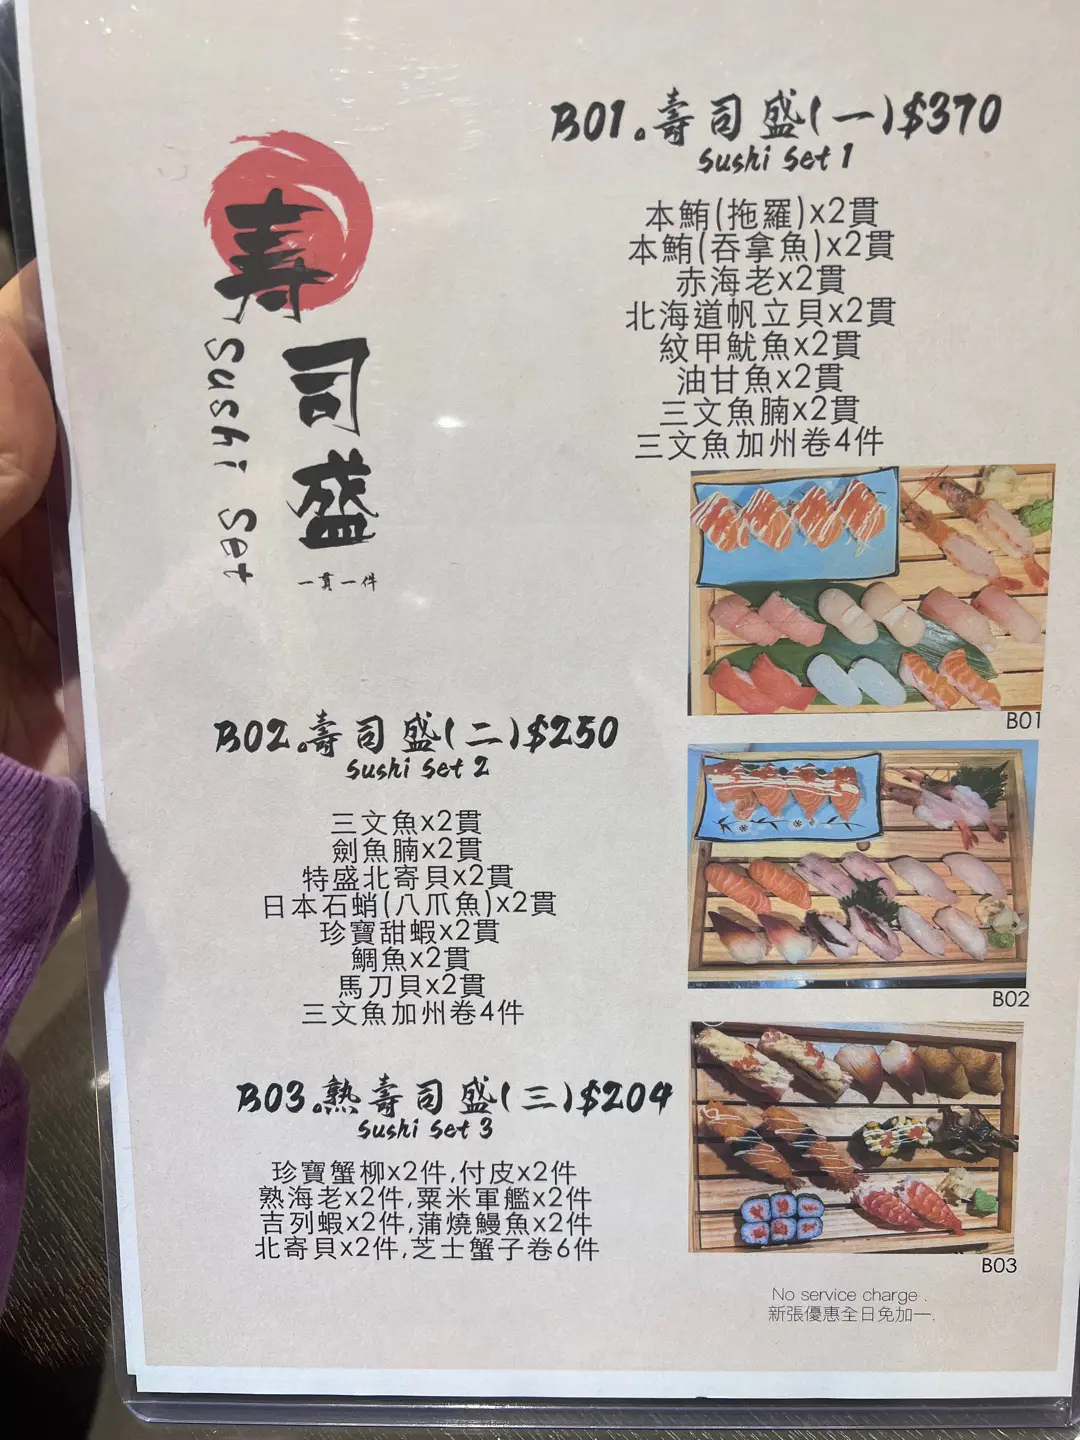 壽司盛
Sushi Set
一貫一件
B01.壽司盛(一)$370
Sushi Set 1
本鮪(拖羅)x2貫
本鮪(吞拿魚)x2貫
赤海老x2貫
北海道帆立貝x2貫
紋甲魷魚x2貫
油甘魚x2貫
三文魚腩x2貫
三文魚加州卷4件
B01
B02.壽司盛(二)$250
Sushi Set 2
三文魚x2貫
劍魚腩x2貫
特盛北寄貝x2貫
日本石蛸(八爪魚)x2貫
珍寶甜蝦x2貫
鯛魚x2貫
馬刀貝x2貫
三文魚加州卷4件
B02
B03.熟壽司盛(三)$204
Sushi Set 3
珍寶蟹柳x2件,付皮x2件
熟海老x2件,粟米軍艦x2件
吉列蝦x2件,蒲燒鰻魚x2件
北寄貝x2件,芝士蟹子卷6件
B03
No service charge .
新張優惠全日免加一.